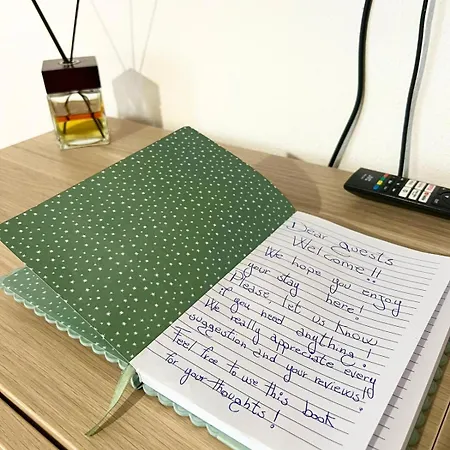 Dear Guests
Welcome!!
We hope you enjoy
your stay here!
Please, let us know
if you need anything!
We really appreciate every
suggestion and your reviews!
Feel free to use this book
for your thoughts!